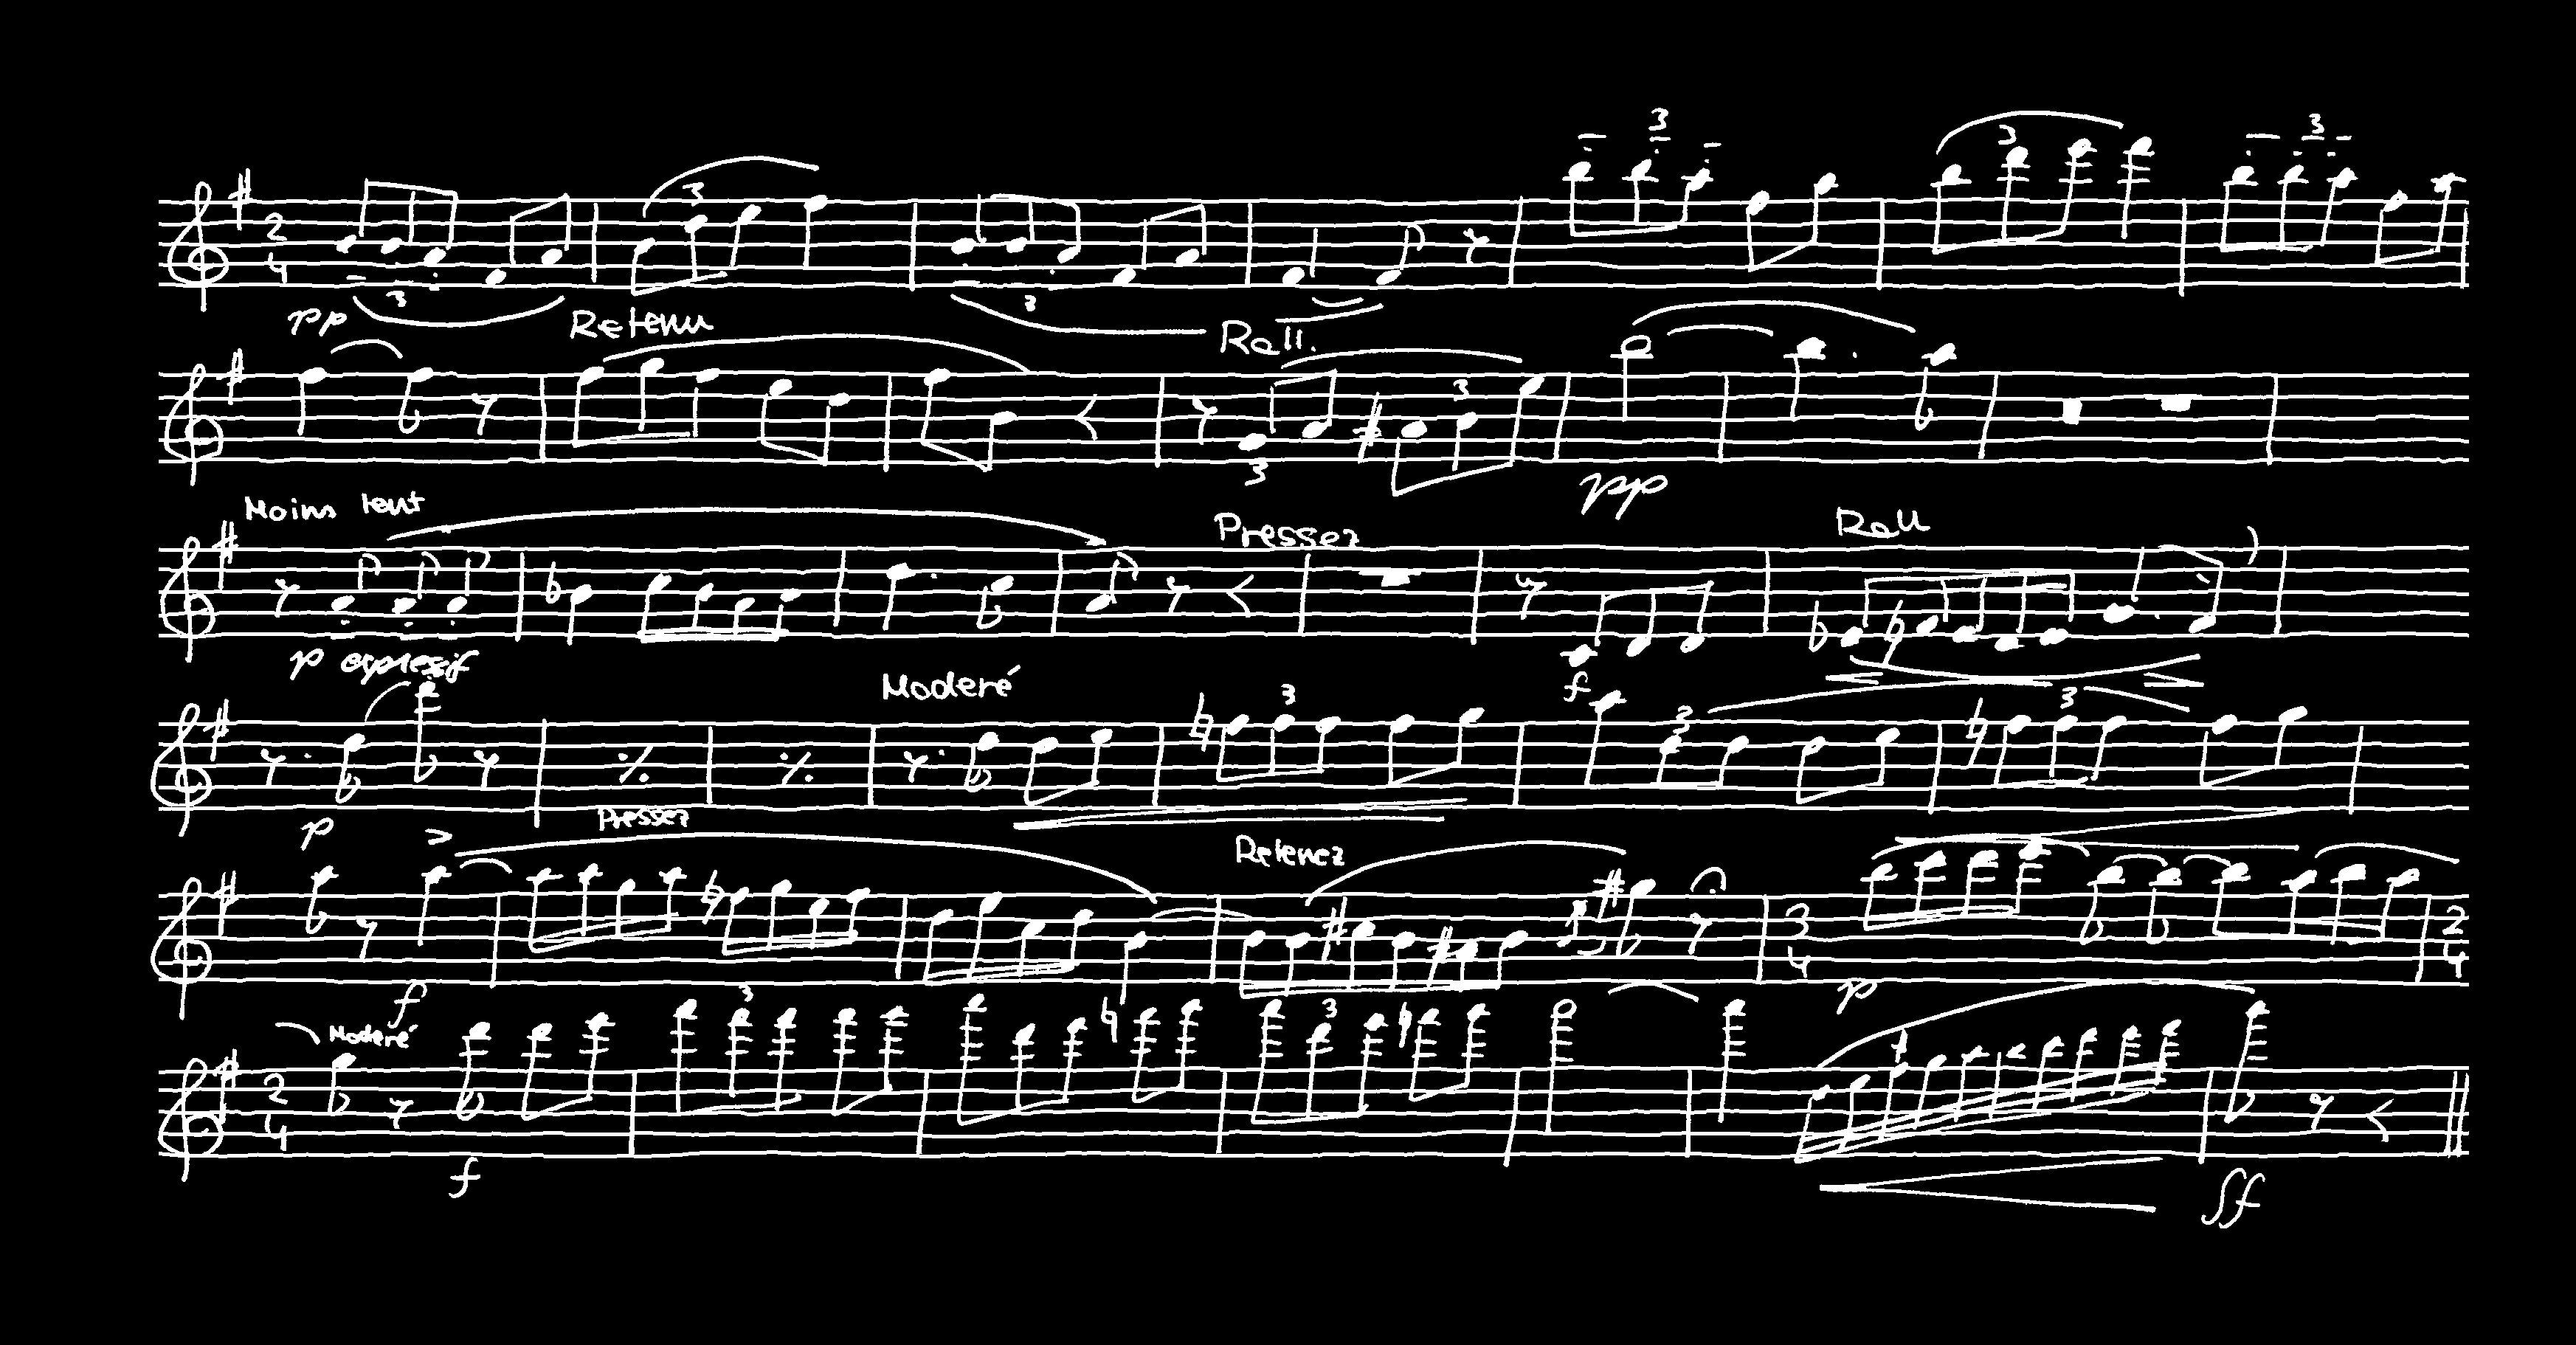 3 3
3 3
2
4
3 3
pp Retenu Rall.
3
3
pp
Moins lent Pressez Rall
p expressif
f
Moderé
3 3 3
p Pressez
Retenez
3
4
2
4
f p
Moderé 3 3
2
4
f ff